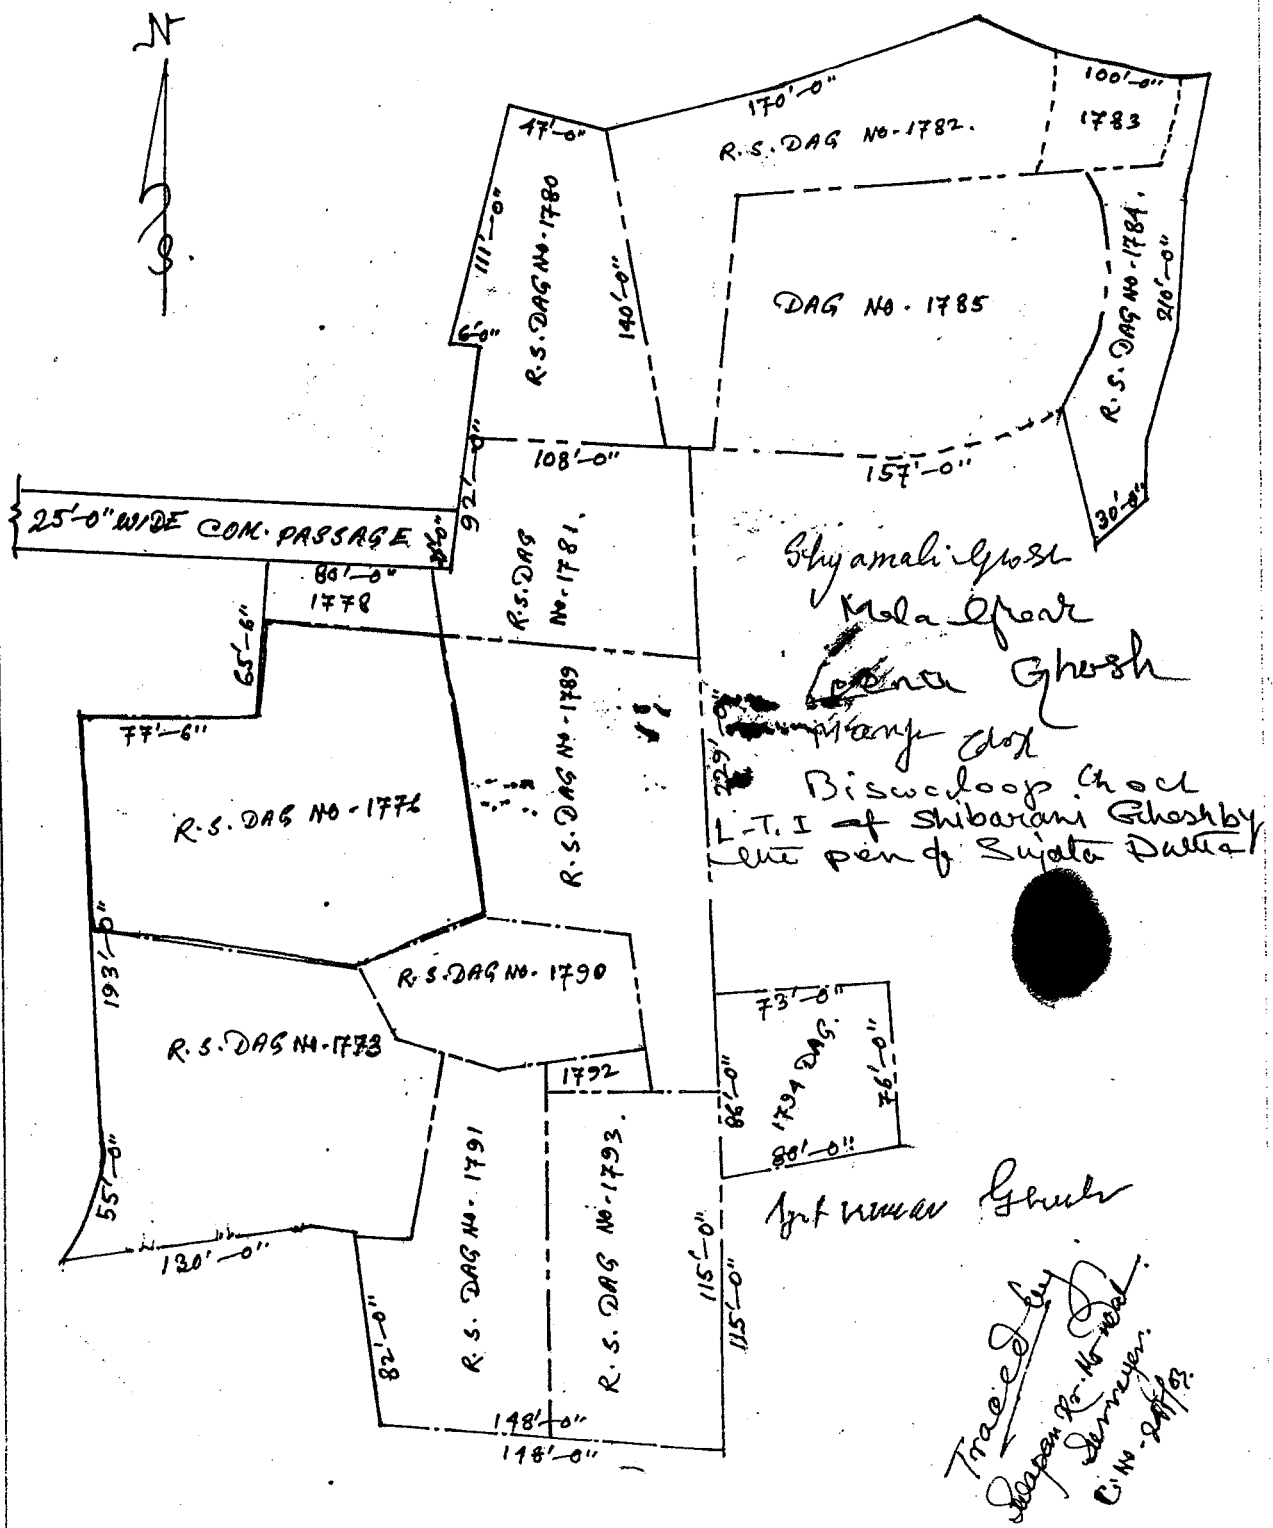 N
S.
47'-0"
170'-0"
100'-0"
1783
R.S. DAG NO-1782.
111'-0"
R.S. DAG NO-1780
140'-0"
6'-0"
DAG NO. 1785
R.S. DAG NO-1784.
210'-0"
108'-0"
157'-0"
30'-0"
92'-0"
25'-0" WIDE COM. PASSAGE
80'-0"
1778
R.S. DAG
NO-1781.
65'-6"
77'-6"
R.S. DAG NO-1789
229'
R.S. DAG NO-1776
Shyamali Ghosh
Ghosh
L.T.I of Shibarani Ghosh by
the pen of Sujata Dutta
193'-0"
R.S. DAG NO. 1790
R.S. DAG NO-1773
1792
73'-0"
1794 DAG.
76'-0"
86'-0"
80'-0"
55'-0"
130'-0"
R.S. DAG NO. 1791
R.S. DAG NO. 1793.
115'-0"
115'-0"
82'-0"
148'-0"
148'-0"
Traced by
Swapan Kr. Mondal.
Surveyor.